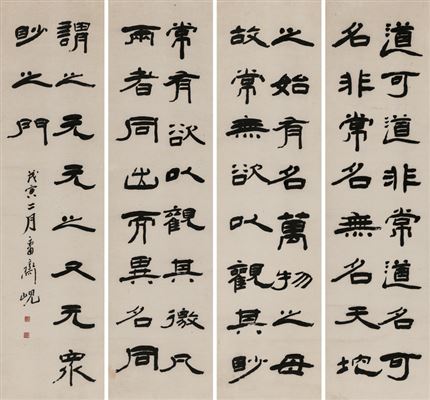 道可道非常道名可
名非常名無名天地
之始有名萬物之母
故常無欲以觀其眇
常有欲以觀其徼凡
兩者同出而異名同
謂之无无之又无眾
眇之門
戊寅二月